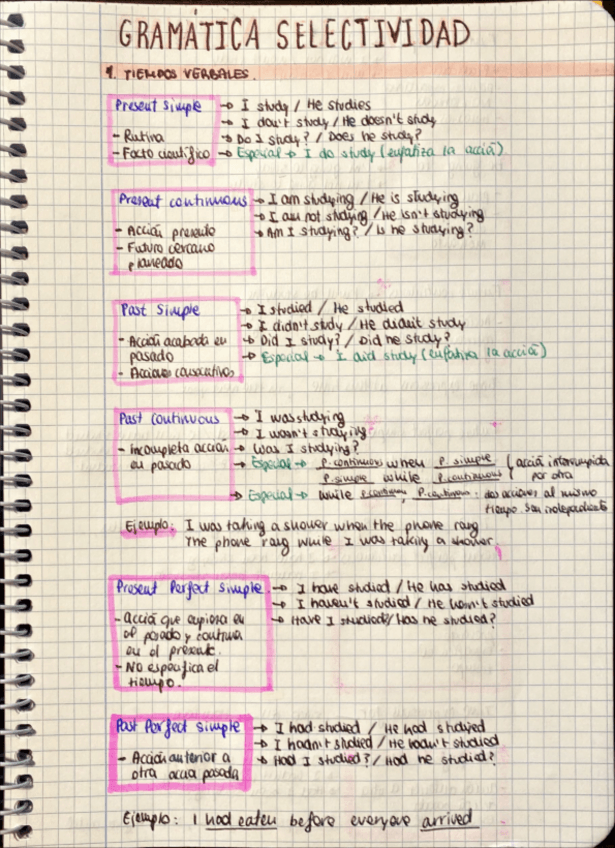 GRAMÁTICA SELECTIVIDAD
1. TIEMPOS VERBALES.
Present simple
- Rutina
- Facto científico
→ I study / He studies
→ I don't study / He doesn't study
→ Do I study? / Does he study?
→ Especial → I do study (enfatiza la acción)
Present continuous
- Acción presente
- Futuro cercano
planeado
→ I am studying / He is studying
→ I am not studying / He isn't studying
→ Am I studying? / Is he studying?
Past simple
- Acción acabada en
pasado
- Acciones consecutivas
→ I studied / He studied
→ I didn't study / He didn't study
→ Did I study? / Did he study?
→ Especial → I did study (enfatiza la acción)
Past continuous
- Incompleta acción
en pasado
→ I was studying
→ I wasn't studying
→ Was I studying?
→ Especial → P. continuous when P. simple
P. simple while P. continuous
(acción interrumpida
por otra
→ Especial → While P. continuous, P. continuous: dos acciones al mismo
tiempo son independientes
Ejemplo: I was taking a shower when the phone rang
The phone rang while I was taking a shower.
Present Perfect simple
- Acción que empieza en
el pasado y continua
en el presente.
- No especifica el
tiempo.
→ I have studied / He has studied
→ I haven't studied / He hasn't studied
→ Have I studied/has he studied?
Past Perfect simple
- Acción anterior a
otra pasada
→ I had studied / He had studied
→ I hadn't studied / He hadn't studied
→ Had I studied? / Had he studied?
Ejemplo: I had eaten before everyone arrived